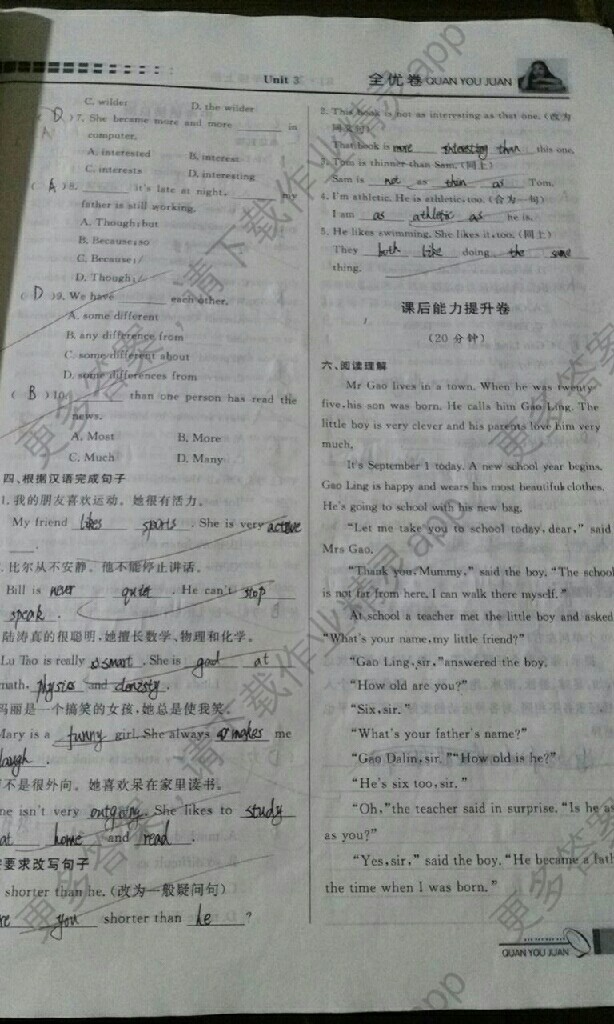 Unit 3
全优卷 QUAN YOU JUAN
C. wilder D. the wilder
( D )7. She became more and more ______ in
A
computer.
A. interested B. interest
C. interests D. interesting
( A )8. ______ it's late at night, ______ my
father is still working.
A. Though; but
B. Because; so
C. Because; /
D. Though; /
( D )9. We have ______ each other.
A. some different
B. any difference from
C. some different about
D. some differences from
( B )10. ______ than one person has read the
news.
A. Most B. More
C. Much D. Many
四、根据汉语完成句子
1. 我的朋友喜欢运动。她很有活力。
My friend likes sports . She is very active
.
. 比尔从不安静。他不能停止讲话。
Bill is never quiet . He can't stop
speak .
陆涛真的很聪明,她擅长数学、物理和化学。
Lu Tao is really smart . She is good at
math, physics and .
玛丽是一个搞笑的女孩,她总是使我笑。
Mary is a funny girl. She always makes me
laugh .
不是很外向。她喜欢呆在家里读书。
ne isn't very outgoing . She likes to study
at home and read .
要求改写句子
shorter than he. (改为一般疑问句)
re you shorter than he ?
2. This book is not as interesting as that one. (改为
同义句)
That book is more interesting than this one.
3. Tom is thinner than Sam. (同上)
Sam is not as thin as Tom.
4. I'm athletic. He is athletic, too. (合为一句)
I am as athletic as he is.
5. He likes swimming. She likes it, too. (同上)
They both like doing the same
thing.
课后能力提升卷
(20分钟)
六、阅读理解
Mr Gao lives in a town. When he was twenty-
five, his son was born. He calls him Gao Ling. The
little boy is very clever and his parents love him very
much.
It's September 1 today. A new school year begins.
Gao Ling is happy and wears his most beautiful clothes.
He's going to school with his new bag.
"Let me take you to school today, dear," said
Mrs Gao.
"Thank you, Mummy," said the boy. "The school
is not far from here. I can walk there myself."
At school a teacher met the little boy and asked
"What's your name, my little friend?"
"Gao Ling, sir," answered the boy.
"How old are you?"
"Six, sir."
"What's your father's name?"
"Gao Dalin, sir." "How old is he?"
"He's six too, sir."
"Oh," the teacher said in surprise. "Is he as
as you?"
"Yes, sir," said the boy. "He became a fath
the time when I was born."
QUAN YOU JUAN
更多答案,请下载作业精灵app
更多答案,请下载作业精灵app